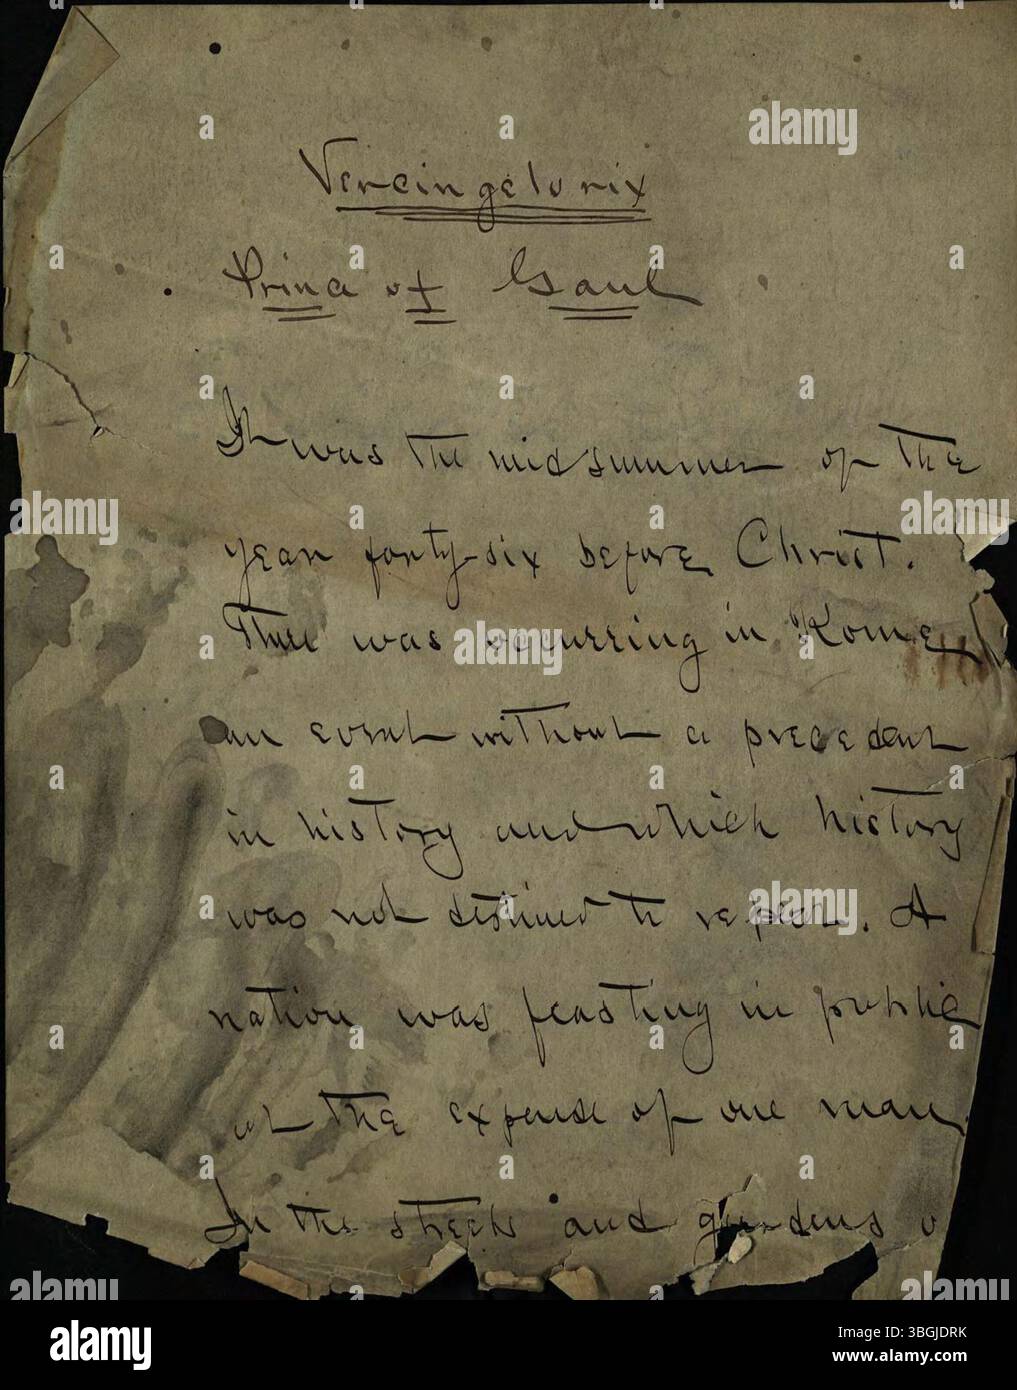 Vercingetorix
Prince of Gaul
It was the midsummer of the
year forty-six before Christ.
There was occurring in Rome
an event without a precedent
in history and which history
was not destined to repeat. A
nation was feasting in public
at the expense of one man.
In the streets and gardens o
alamy
Image ID: 3BGJDRK
www.alamy.com